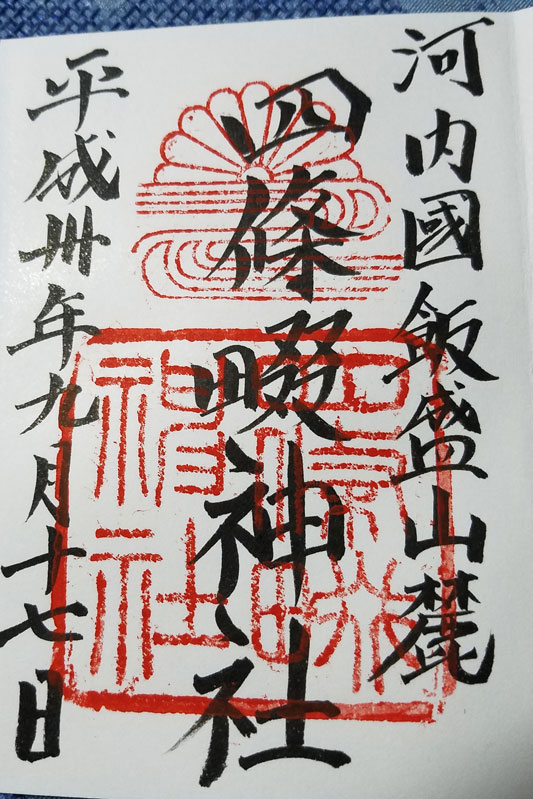 河内國飯盛山麓
四條畷神社
平成卅年九月十七日